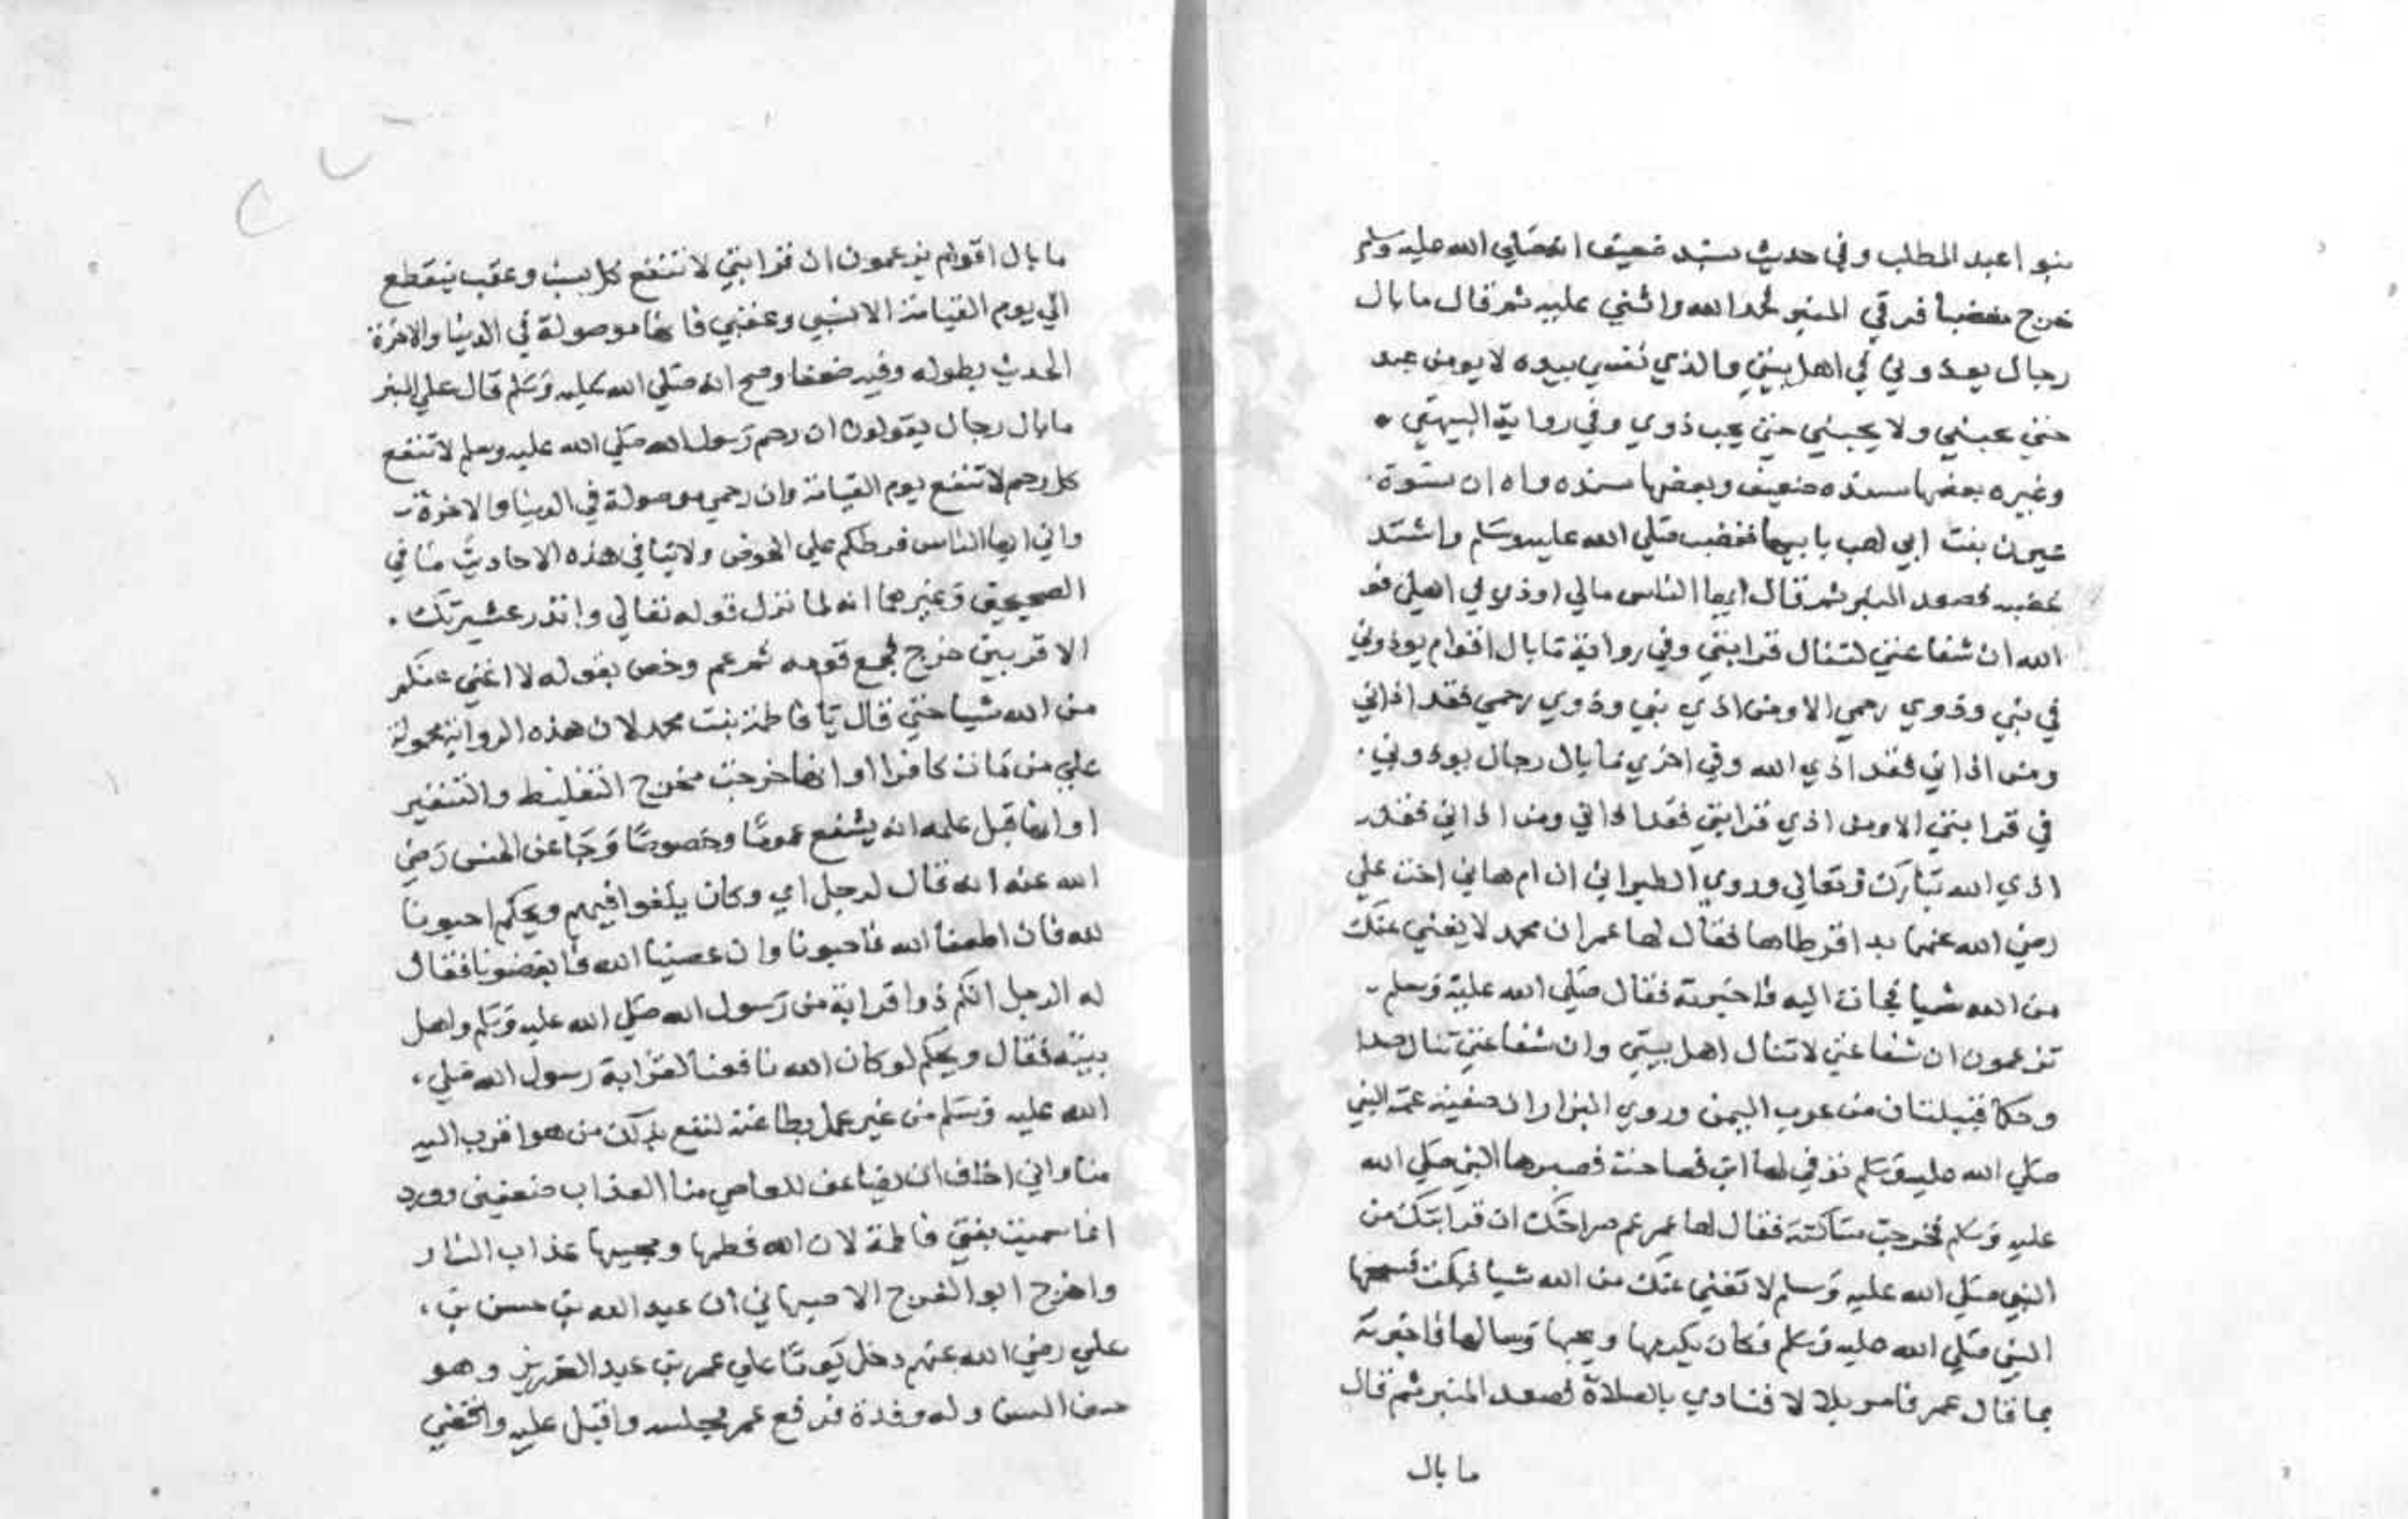 بنو اعبد المطلب وفي حديث بسند ضعيف انه صلي الله عليه وسلم
خرج مغضبا فرقي المنبر فحمد الله واثني عليه ثم قال ما بال
رجال يوذوني في اهل بيتي والذي نفسي بيده لا يومن عبد
حتي يحبني ولا يحبني حتي يحب ذوي وفي رواية البيهقي
وغيره بعضها سنده ضعيف وبعضها سنده واه ان نسوة
عيرن بنت ابي لهب بابيها فغضب صلي الله عليه وسلم واشتد
غضبه فصعد المنبر ثم قال ايها الناس مالي اوذي في اهلي فو
الله ان شفاعتي لتنال قرابتي وفي رواية ما بال اقوام يوذوني
في نبي وذوي رحمي الا ومن اذي نبي وذوي رحمي فقد اذاني
ومن اذاني فقد اذي الله وفي اخري ما بال رجال يوذوني
في قرابتي الا ومن اذي قرابتي فقد اذاني ومن اذاني فقد
اذي الله تبارك وتعالي وروي الطبراني ان ام هاني اخت علي
رضي الله عنهما بدا قرطاها فقال لها عمر ان محمد لا يغني عنك
من الله شيا فجات اليه فاخبرته فقال صلي الله عليه وسلم
تزعمون ان شفاعتي لا تنال اهل بيتي وان شفاعتي تنال صدا
وحكا قبيلتان من عرب اليمن وروي البزار ان صفية عمة النبي
صلي الله عليه وسلم توفي لها ابن فصاحت فصبرها النبي صلي الله
عليه وسلم فخرجت ساكتة فقال لها عمر صراخك ان قرابتك من
النبي صلي الله عليه وسلم لا تغني عنك من الله شيا فبكت فسمعها
النبي صلي الله عليه وسلم وكان يكرمها ويحبها وسالها فاخبرته
بما قال عمر فامر بلالا فنادي بالصلاة فصعد المنبر ثم قال
ما بال
ما بال اقوام يزعمون ان قرابتي لا تنفع كل نسب وعقب ينقطع
الي يوم القيامة الا نسبي وعقبي فانها موصولة في الدنيا والاخرة
الحديث بطوله وفيه ضعفا وصح انه صلي الله عليه وسلم قال علي المنبر
ما بال رجال يقولون ان رحم رسول الله صلي الله عليه وسلم لا تنفع
كل رحم لا تنفع يوم القيامة وان رحمي موصولة في الدنيا والاخرة
واني ايها الناس فرطكم علي الحوض ولا ينافي هذه الاحاديث ما في
الصحيحين وغيرهما انه لما نزل قوله تعالي وانذر عشيرتك
الاقربين خرج فجمع قومه ثم عم وخص بقوله لا اغني عنكم
من الله شيا حتي قال يا فاطمة بنت محمد لان هذه الرواية محمولة
علي من مات كافرا او انها خرجت مخرج التغليظ والتنفير
او انها قبل علمه انه يشفع عموما وخصوصا وجا عن الحسن رضي
الله عنه انه قال لرجل اي وكان يلغوا فيهم ويحكم احبونا
لله فان اطعنا الله فاحبونا وان عصينا الله فابغضونا فقال
له الرجل انكم ذوا قرابة من رسول الله صلي الله عليه وسلم واهل
بيته فقال ويحكم لو كان الله نافعنا لقرابة رسول الله صلي
الله عليه وسلم من غير عمل بطاعته لنفع بذلك من هو اقرب اليه
منا واني اخاف ان يضاعف للعاصي منا العذاب ضعفين وورد
انما سميت بنتي فاطمة لان الله فطمها ومحبيها عذاب النار
واخرج ابو الفرج الاصبهاني ان عبد الله بن حسن بن
علي رضي الله عنهم دخل يوما علي عمر بن عبد العزيز وهو
السن وله وفرة فرفع عمر مجلسه واقبل عليه وانحفي